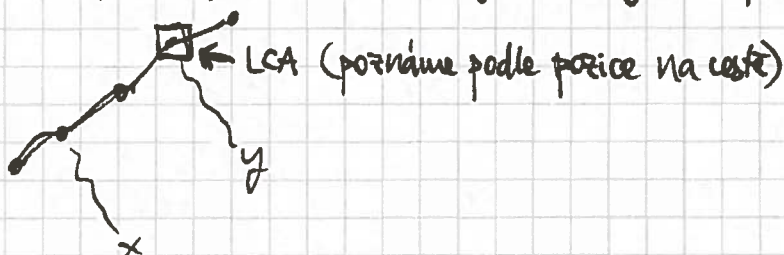 LCA (poznáme podle pozice na cestě)
y
x